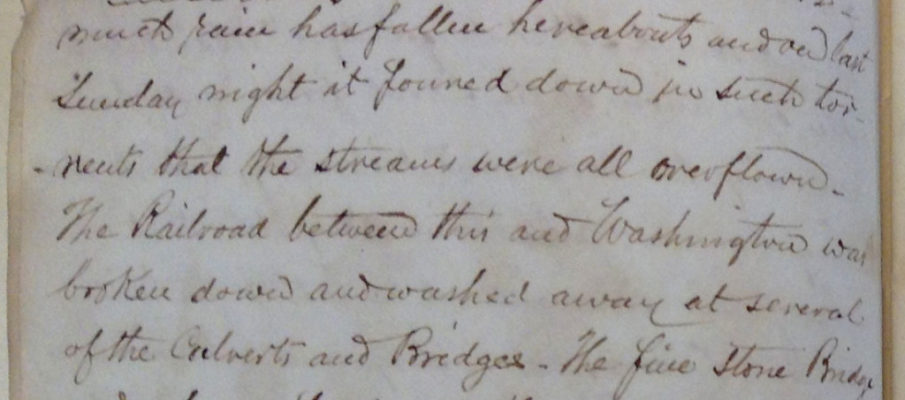 much rain has fallen hereabouts and on last
Sunday night it poured down in such tor-
-rents that the streams were all overflown -
The Railroad between this and Washington was
broken down and washed away at several
of the Culverts and Bridges - The fine Stone Bridge